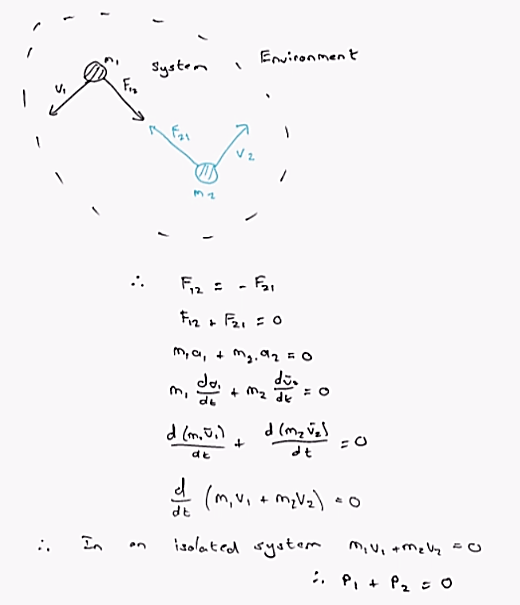 m₁
System
Environment
V₁
F₁₂
F₂₁
V₂
m₂
∴ F₁₂ = - F₂₁
F₁₂ + F₂₁ = 0
m₁a₁ + m₂.a₂ = 0
m₁ dv̄₁/dt + m₂ dv̄₂/dt = 0
d(m₁v̄₁)/dt + d(m₂v̄₂)/dt = 0
d/dt (m₁V₁ + m₂V₂) = 0
∴ In an isolated system m₁V₁ + m₂V₂ = 0
∴ P₁ + P₂ = 0